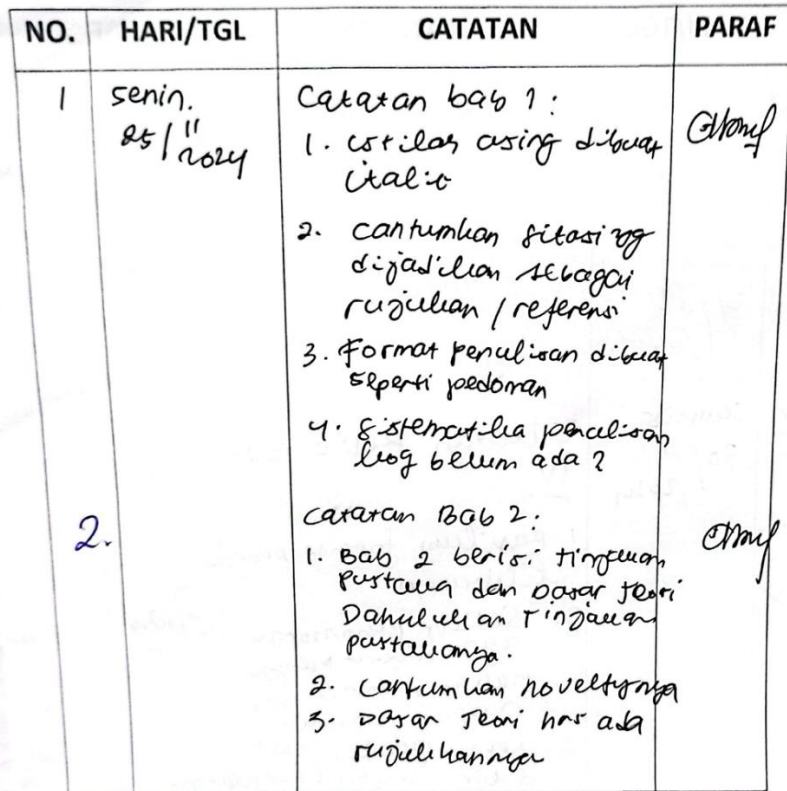 NO. HARI/TGL CATATAN PARAF
1 senin. Catatan bab 1:
25/11 2024 1. istilah asing dibuat
italic
2. cantumkan sitasi yg
dijadikan sebagai
rujukan / referensi
3. Format penulisan dibuat
seperti pedoman
4. Sistematika penulisan
kog belum ada?
2. Catatan Bab 2:
1. Bab 2 berisi tinjauan
pustaka dan Dasar teori
Dahulukan Tinjauan
pustakanya.
2. cantumkan noveltynya
3. Dasar Teori hrs ada
rujukkannya